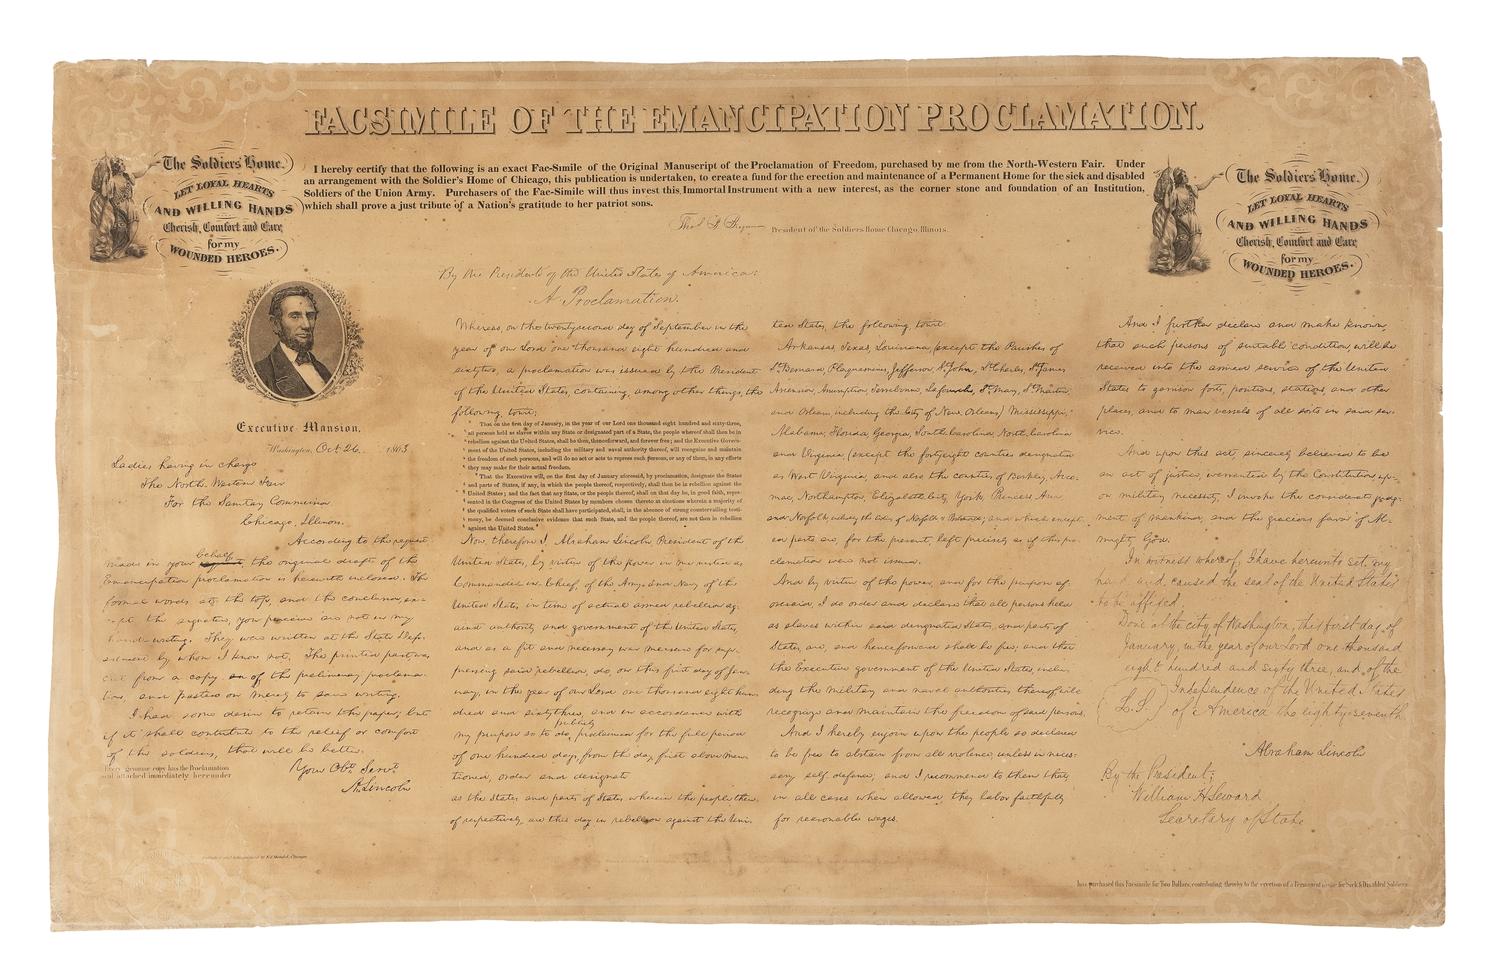 FACSIMILE OF THE EMANCIPATION PROCLAMATION.
The Soldiers Home.
LET LOYAL HEARTS
AND WILLING HANDS
Cherish, Comfort and Care
for my
WOUNDED HEROES.
I hereby certify that the following is an exact Fac-Simile of the Original Manuscript of the Proclamation of Freedom, purchased by me from the North-Western Fair. Under
an arrangement with the Soldier's Home of Chicago, this publication is undertaken, to create a fund for the erection and maintenance of a Permanent Home for the sick and disabled
Soldiers of the Union Army. Purchasers of the Fac-Simile will thus invest this Immortal Instrument with a new interest, as the corner stone and foundation of an Institution,
which shall prove a just tribute of a Nation's gratitude to her patriot sons.
President of the Soldiers Home Chicago, Illinois.
The Soldiers Home.
LET LOYAL HEARTS
AND WILLING HANDS
Cherish, Comfort and Care
for my
WOUNDED HEROES.
Executive Mansion,
Washington, Oct 26, 1863
Ladies having in charge
The North-Western Fair
For the Sanitary Commission
Chicago, Illinois.
According to the request
made in your behalf, the original draft of the
Emancipation proclamation is herewith inclosed. The
formal words at the top, and the conclusion, ex-
cept the signature, you perceive are not in my
hand-writing. They were written at the State Depart-
ment by whom I know not. The printed part was
cut from a copy of the preliminary proclama-
tion, and pasted on merely to save writing.
I had some desire to retain the paper; but
if it shall contribute to the relief or comfort
of the soldiers, that will be better.
Your Obt. Servt.
A. Lincoln
Every genuine copy has the Proclamation
and attached immediately hereunder
By the President of the United States of America:
A Proclamation.
Whereas, on the twentysecond day of September in the
year of our Lord one thousand eight hundred and
sixtytwo, a proclamation was issued by the President
of the United States, containing, among other things, the
following, towit:
" That on the first day of January, in the year of our Lord one thousand eight hundred and sixty-three,
" all persons held as slaves within any State or designated part of a State, the people whereof shall then be in
" rebellion against the United States, shall be then, thenceforward, and forever free; and the Executive Govern-
" ment of the United States, including the military and naval authority thereof, will recognize and maintain
" the freedom of such persons, and will do no act or acts to repress such persons, or any of them, in any efforts
" they may make for their actual freedom.
" That the Executive will, on the first day of January aforesaid, by proclamation, designate the States
" and parts of States, if any, in which the people thereof, respectively, shall then be in rebellion against the
" United States; and the fact that any State, or the people thereof, shall on that day be, in good faith, repre-
" sented in the Congress of the United States by members chosen thereto at elections wherein a majority of
" the qualified voters of such State shall have participated, shall, in the absence of strong countervailing testi-
" mony, be deemed conclusive evidence that such State, and the people thereof, are not then in rebellion
" against the United States."
Now, therefore I, Abraham Lincoln, President of the
United States, by virtue of the power in me vested as
Commander-in-Chief, of the Army and Navy of the
United States, in time of actual armed rebellion ag-
ainst authority and government of the United States,
and as a fit and necessary war measure for sup-
pressing said rebellion, do, on this first day of Jan-
uary, in the year of our Lord one thousand eight hun-
dred and sixtythree, and in accordance with
my purpose so to do, publicly proclaimed for the full period
of one hundred days, from the day first above men-
tioned, order and designate
as the States and parts of States wherein the people there-
of respectively, are this day in rebellion against the Uni-
ted States, the following, towit:
Arkansas, Texas, Louisiana, (except the Parishes of
St. Bernard, Plaquemines, Jefferson, St. John, St. Charles, St. James
Ascension, Assumption, Terrebonne, Lafourche, St. Mary, St. Martin,
and Orleans, including the City of New Orleans) Mississippi,
Alabama, Florida, Georgia, South-Carolina, North-Carolina
and Virginia, (except the fortyeight counties designated
as West Virginia, and also the counties of Berkley, Acco-
mac, Northampton, Elizabeth-City, York, Princess Ann
and Norfolk, including the cities of Norfolk & Portsmouth; and which except-
ed parts are, for the present, left precisely as if this pro-
clamation were not issued.
And by virtue of the power, and for the purpose af-
oresaid, I do order and declare that all persons held
as slaves within said designated States, and parts of
States, are, and henceforward shall be free; and that
the Executive government of the United States, inclu-
ding the military and naval authorities thereof, will
recognize and maintain the freedom of said persons.
And I hereby enjoin upon the people so declared
to be free to abstain from all violence, unless in neces-
sary self-defence; and I recommend to them that,
in all cases when allowed, they labor faithfully
for reasonable wages.
And I further declare and make known,
that such persons of suitable condition, will be
received into the armed service of the United
States to garrison forts, positions, stations, and other
places, and to man vessels of all sorts in said ser-
vice.
And upon this act, sincerely believed to be
an act of justice, warranted by the Constitution, up-
on military necessity, I invoke the considerate judg-
ment of mankind, and the gracious favor of Al-
mighty God.
In witness whereof, I have hereunto set my
hand and caused the seal of the United States
to be affixed.
Done at the city of Washington, this first day of
January, in the year of our Lord one thousand
eight hundred and sixty three, and of the
Independence of the United States
(L.S.) of America the eighty-seventh.
Abraham Lincoln
By the President;
William H. Seward
Secretary of State
has purchased this Facsimile for Two Dollars, contributing thereby to the erection of a Permanent Home for Sick & Disabled Soldiers